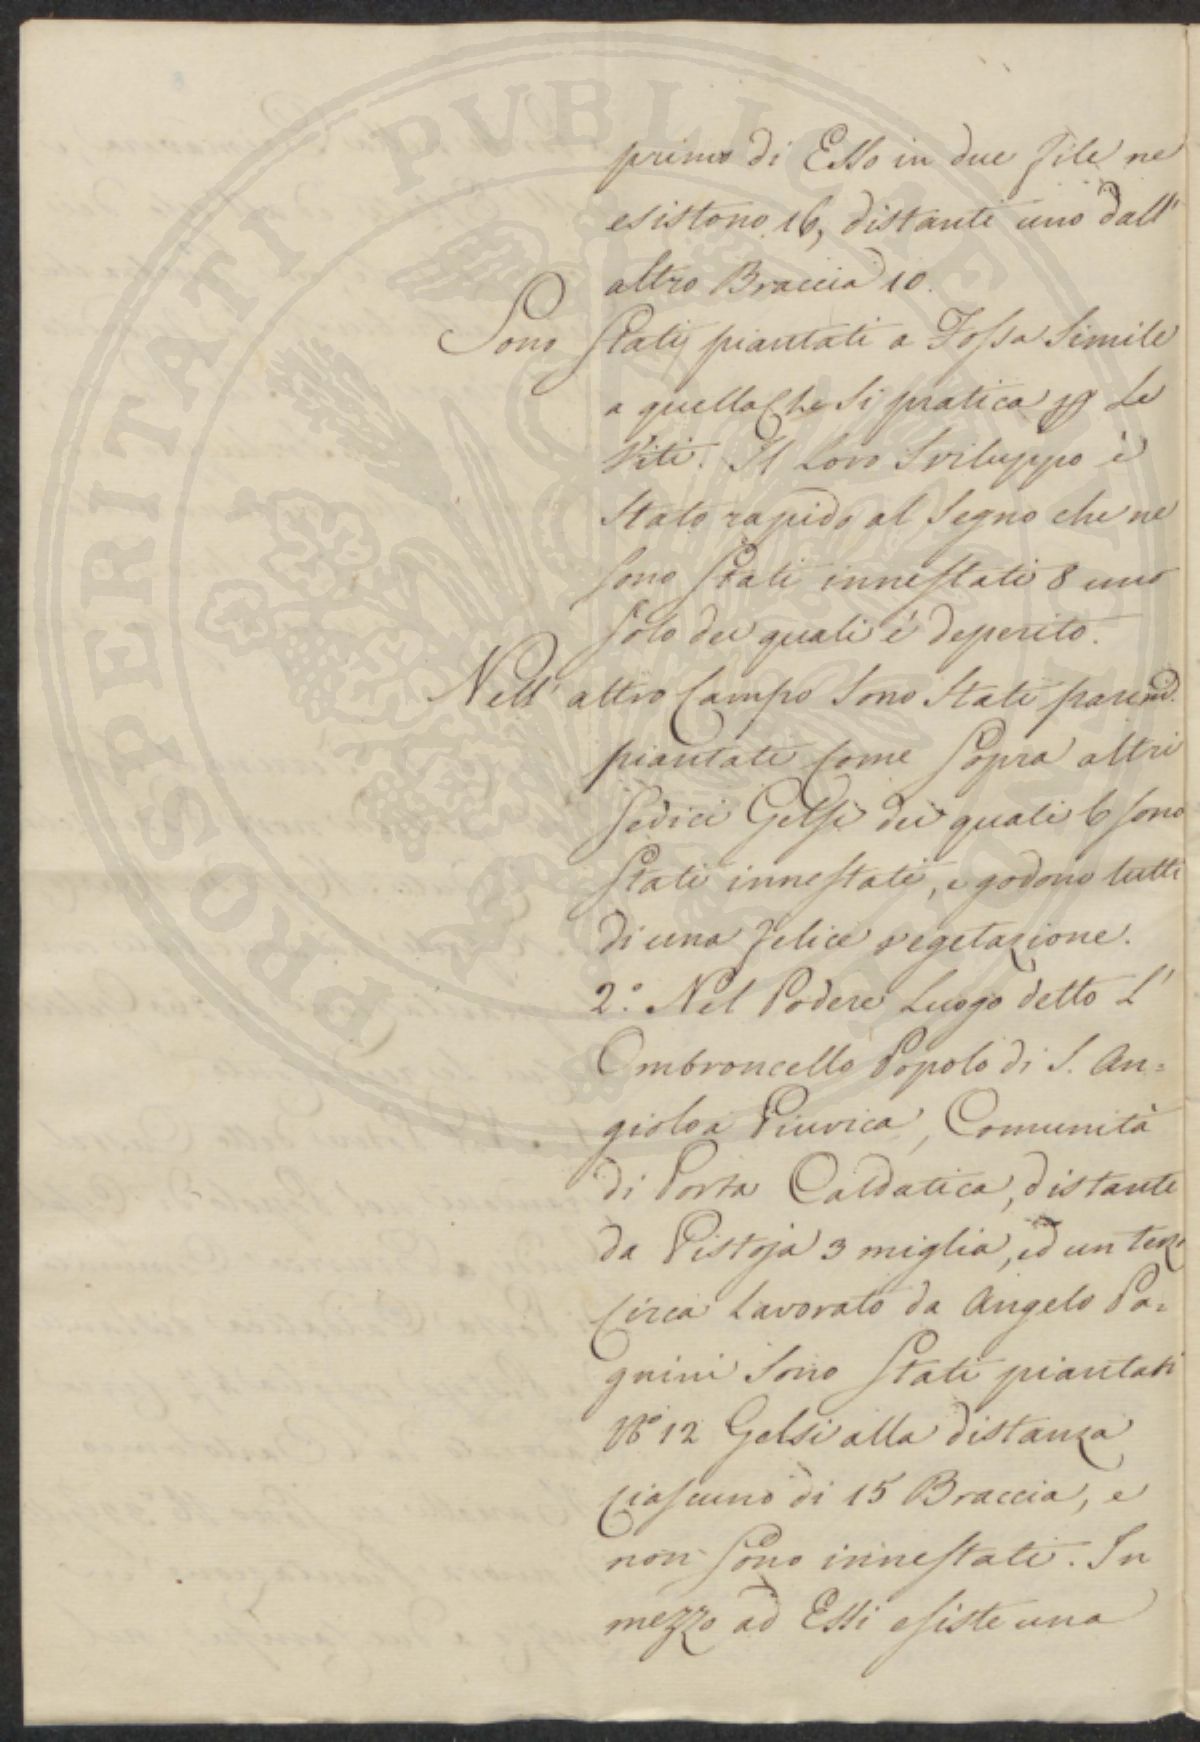 PROSPERITATI PVBLICAE
primo di Esso in due file ne
esistono 16, distanti uno dall'
altro Braccia 10.
Sono Stati piantati a Fossa Simile
a quella che Si pratica p Le
Viti. Il Loro Sviluppo è
Stato rapido al Segno che ne
sono Stati innestati 8 uno
solo dei quali è deperito.
Nell' altro Campo Sono Stati parim.
piantati Come Sopra altri
Sedici Gelsi dei quali 6 sono
Stati innestati, e godono tutti
di una felice vegetazione.
2.° Nel Podere Luogo detto L'
Ombroncello Popolo di S. An=
giolo a Piuvica, Comunità
di Porta Caldatica, distante
da Pistoja 3 miglia, ed un terzo
Circa Lavorato da Angelo Pa=
gnini Sono Stati piantati
N° 12 Gelsi alla distanza
Ciascuno di 15 Braccia, e
non Sono innestati. In
mezzo ad Essi esiste una